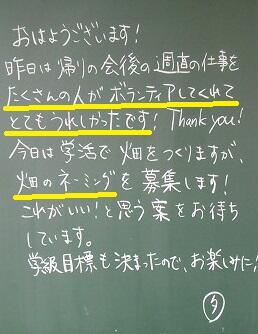 おはようございます!
昨日は帰りの会後の週直の仕事を
たくさんの人がボランティアしてくれて
とてもうれしかったです! Thank you!
今日は学活で畑をつくりますが、
畑のネーミングを募集します!
これがいい!と思う案をお待ち
しています。
学級目標も決まったので、お楽しみに!